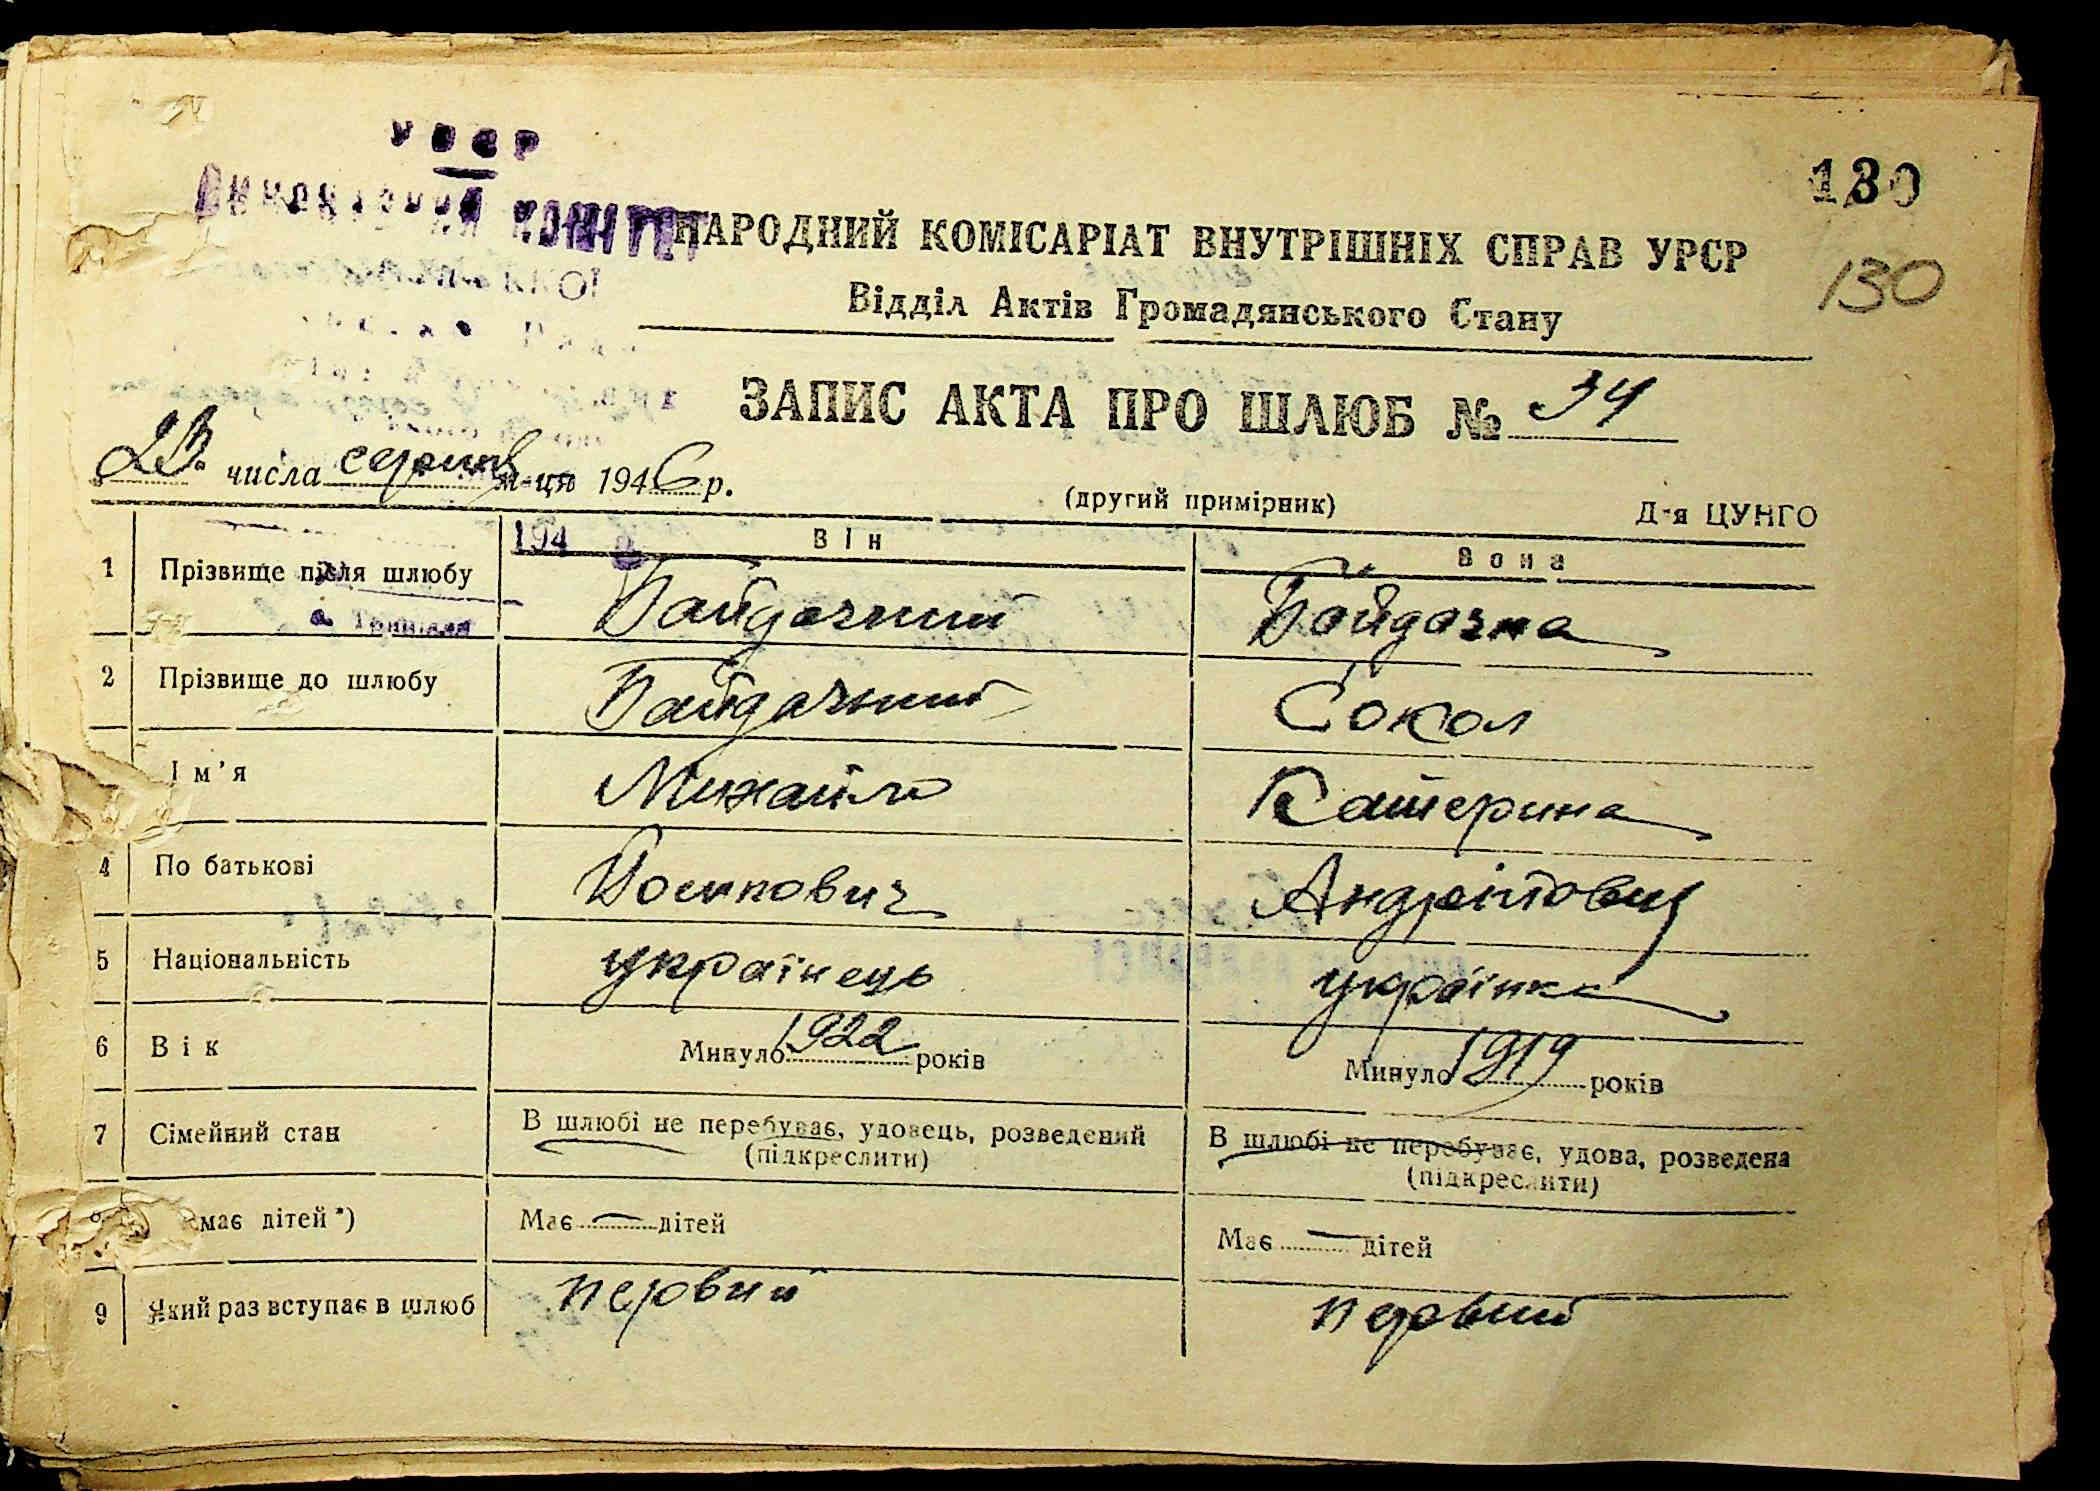 УРСР
130
ВИКОНАВЧИЙ КОМІТЕТ
НАРОДНИЙ КОМІСАРІАТ ВНУТРІШНІХ СПРАВ УРСР
130
Відділ Актів Громадянського Стану
ЗАПИС АКТА ПРО ШЛЮБ № 34
числа серпня м-ця 1946 р.
(другий примірник)
Д-я ЦУНГО
194
Він
Вона
1 Прізвище після шлюбу Байдачний Байдачна
2 Прізвище до шлюбу Байдачний Сокол
Ім'я Михайло Катерина
4 По батькові Йосипович Андріївна
5 Національність українець українка
6 Вік Минуло 1922 років Минуло 1919 років
7 Сімейний стан В шлюбі не перебуває, удовець, розведений (підкреслити) В шлюбі не перебуває, удова, розведена (підкреслити)
має дітей*) Має — дітей Має — дітей
9 Який раз вступає в шлюб первий первий